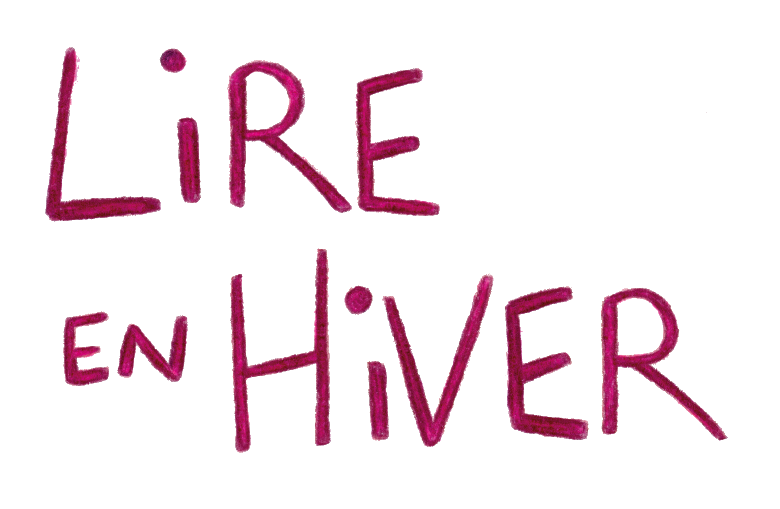 LiRE
EN HiVER